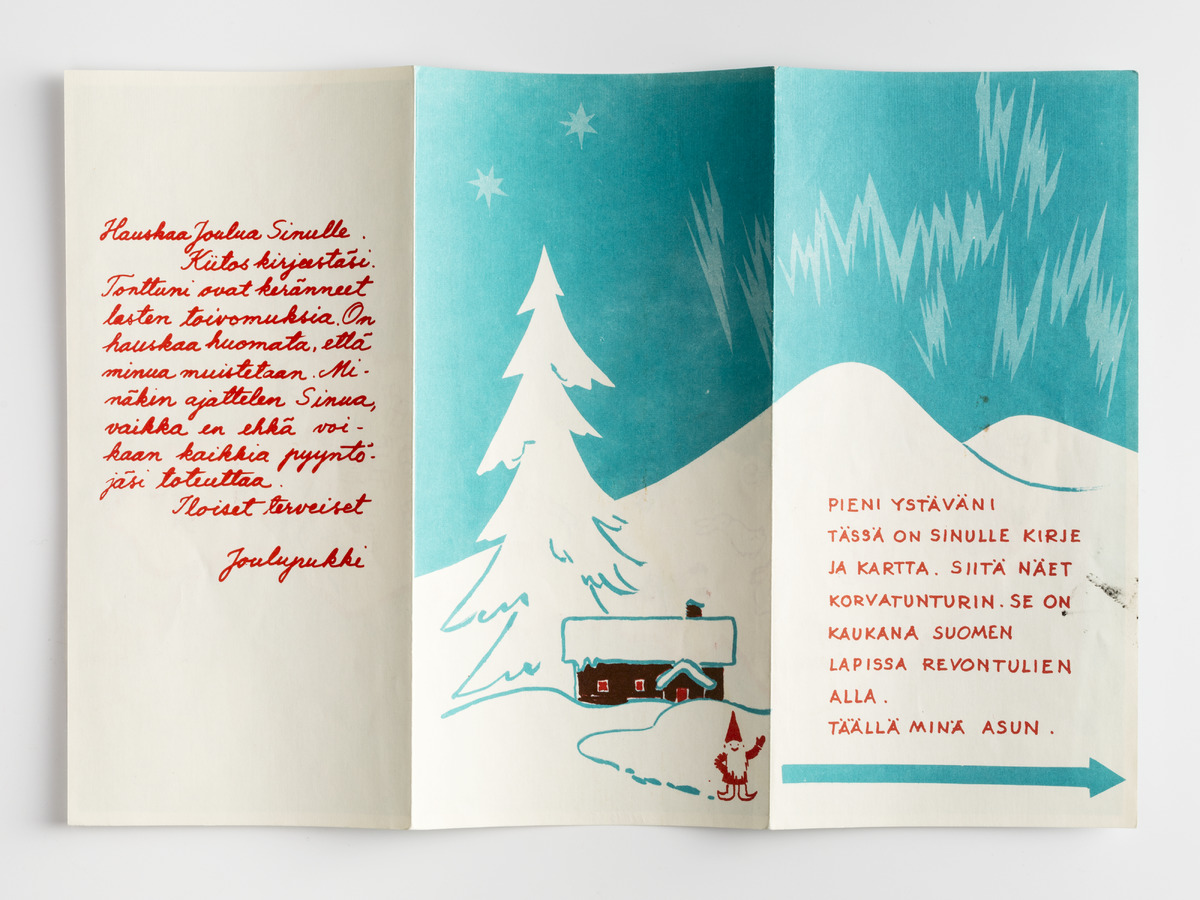 Hauskaa Joulua Sinulle.
Kiitos kirjeestäsi.
Tonttuni ovat keränneet
lasten toivomuksia. On
hauskaa huomata, että
minua muistetaan. Mi-
näkin ajattelen Sinua,
vaikka en ehkä voi-
kaan kaikkia pyyntö-
jäsi toteuttaa.
Iloiset terveiset
Joulupukki
PIENI YSTÄVÄNI
TÄSSÄ ON SINULLE KIRJE
JA KARTTA. SIITÄ NÄET
KORVATUNTURIN. SE ON
KAUKANA SUOMEN
LAPISSA REVONTULIEN
ALLA.
TÄÄLLÄ MINÄ ASUN.